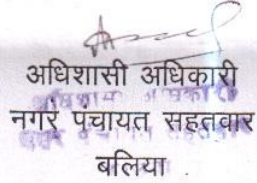 अधिशासी अधिकारी
नगर पंचायत सहतवार
बलिया